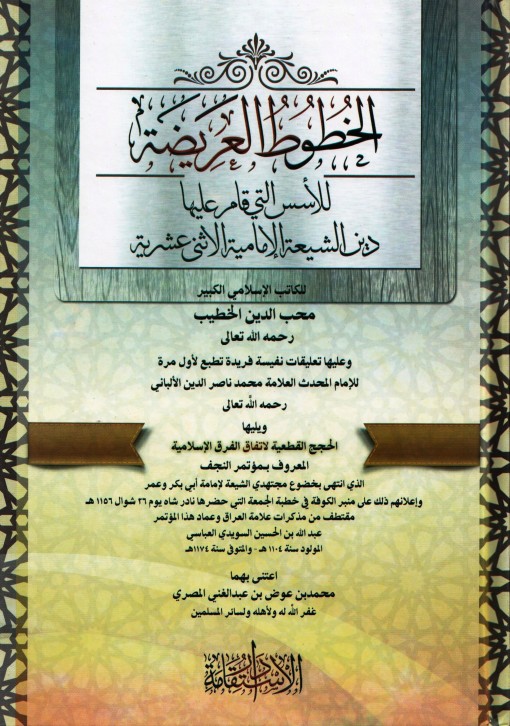 الخُطُوطُ العَرِيضَة
للأسس التي قام عليها
دين الشيعة الإمامية الاثني عشرية
للكاتب الإسلامي الكبير
محب الدين الخطيب
رحمه الله تعالى
وعليها تعليقات نفيسة فريدة تطبع لأول مرة
للإمام المحدث العلامة محمد ناصر الدين الألباني
رحمه الله تعالى
ويليها
الحجج القطعية لاتفاق الفرق الإسلامية
المعروف بـمؤتمر النجف
الذي انتهى بخضوع مجتهدي الشيعة لإمامة أبي بكر وعمر
وإعلانهم ذلك على منبر الكوفة في خطبة الجمعة التي حضرها نادر شاه يوم ٢٦ شوال ١١٥٦ هـ
مقتطف من مذكرات علامة العراق وعماد هذا المؤتمر
عبدالله بن الحسين السويدي العباسي
المولود سنة ١١٠٤ هـ - والمتوفى سنة ١١٧٤هـ
اعتنى بهما
محمدبن عوض بن عبدالغني المصري
غفر الله له ولأهله ولسائر المسلمين
دار الاستقامة